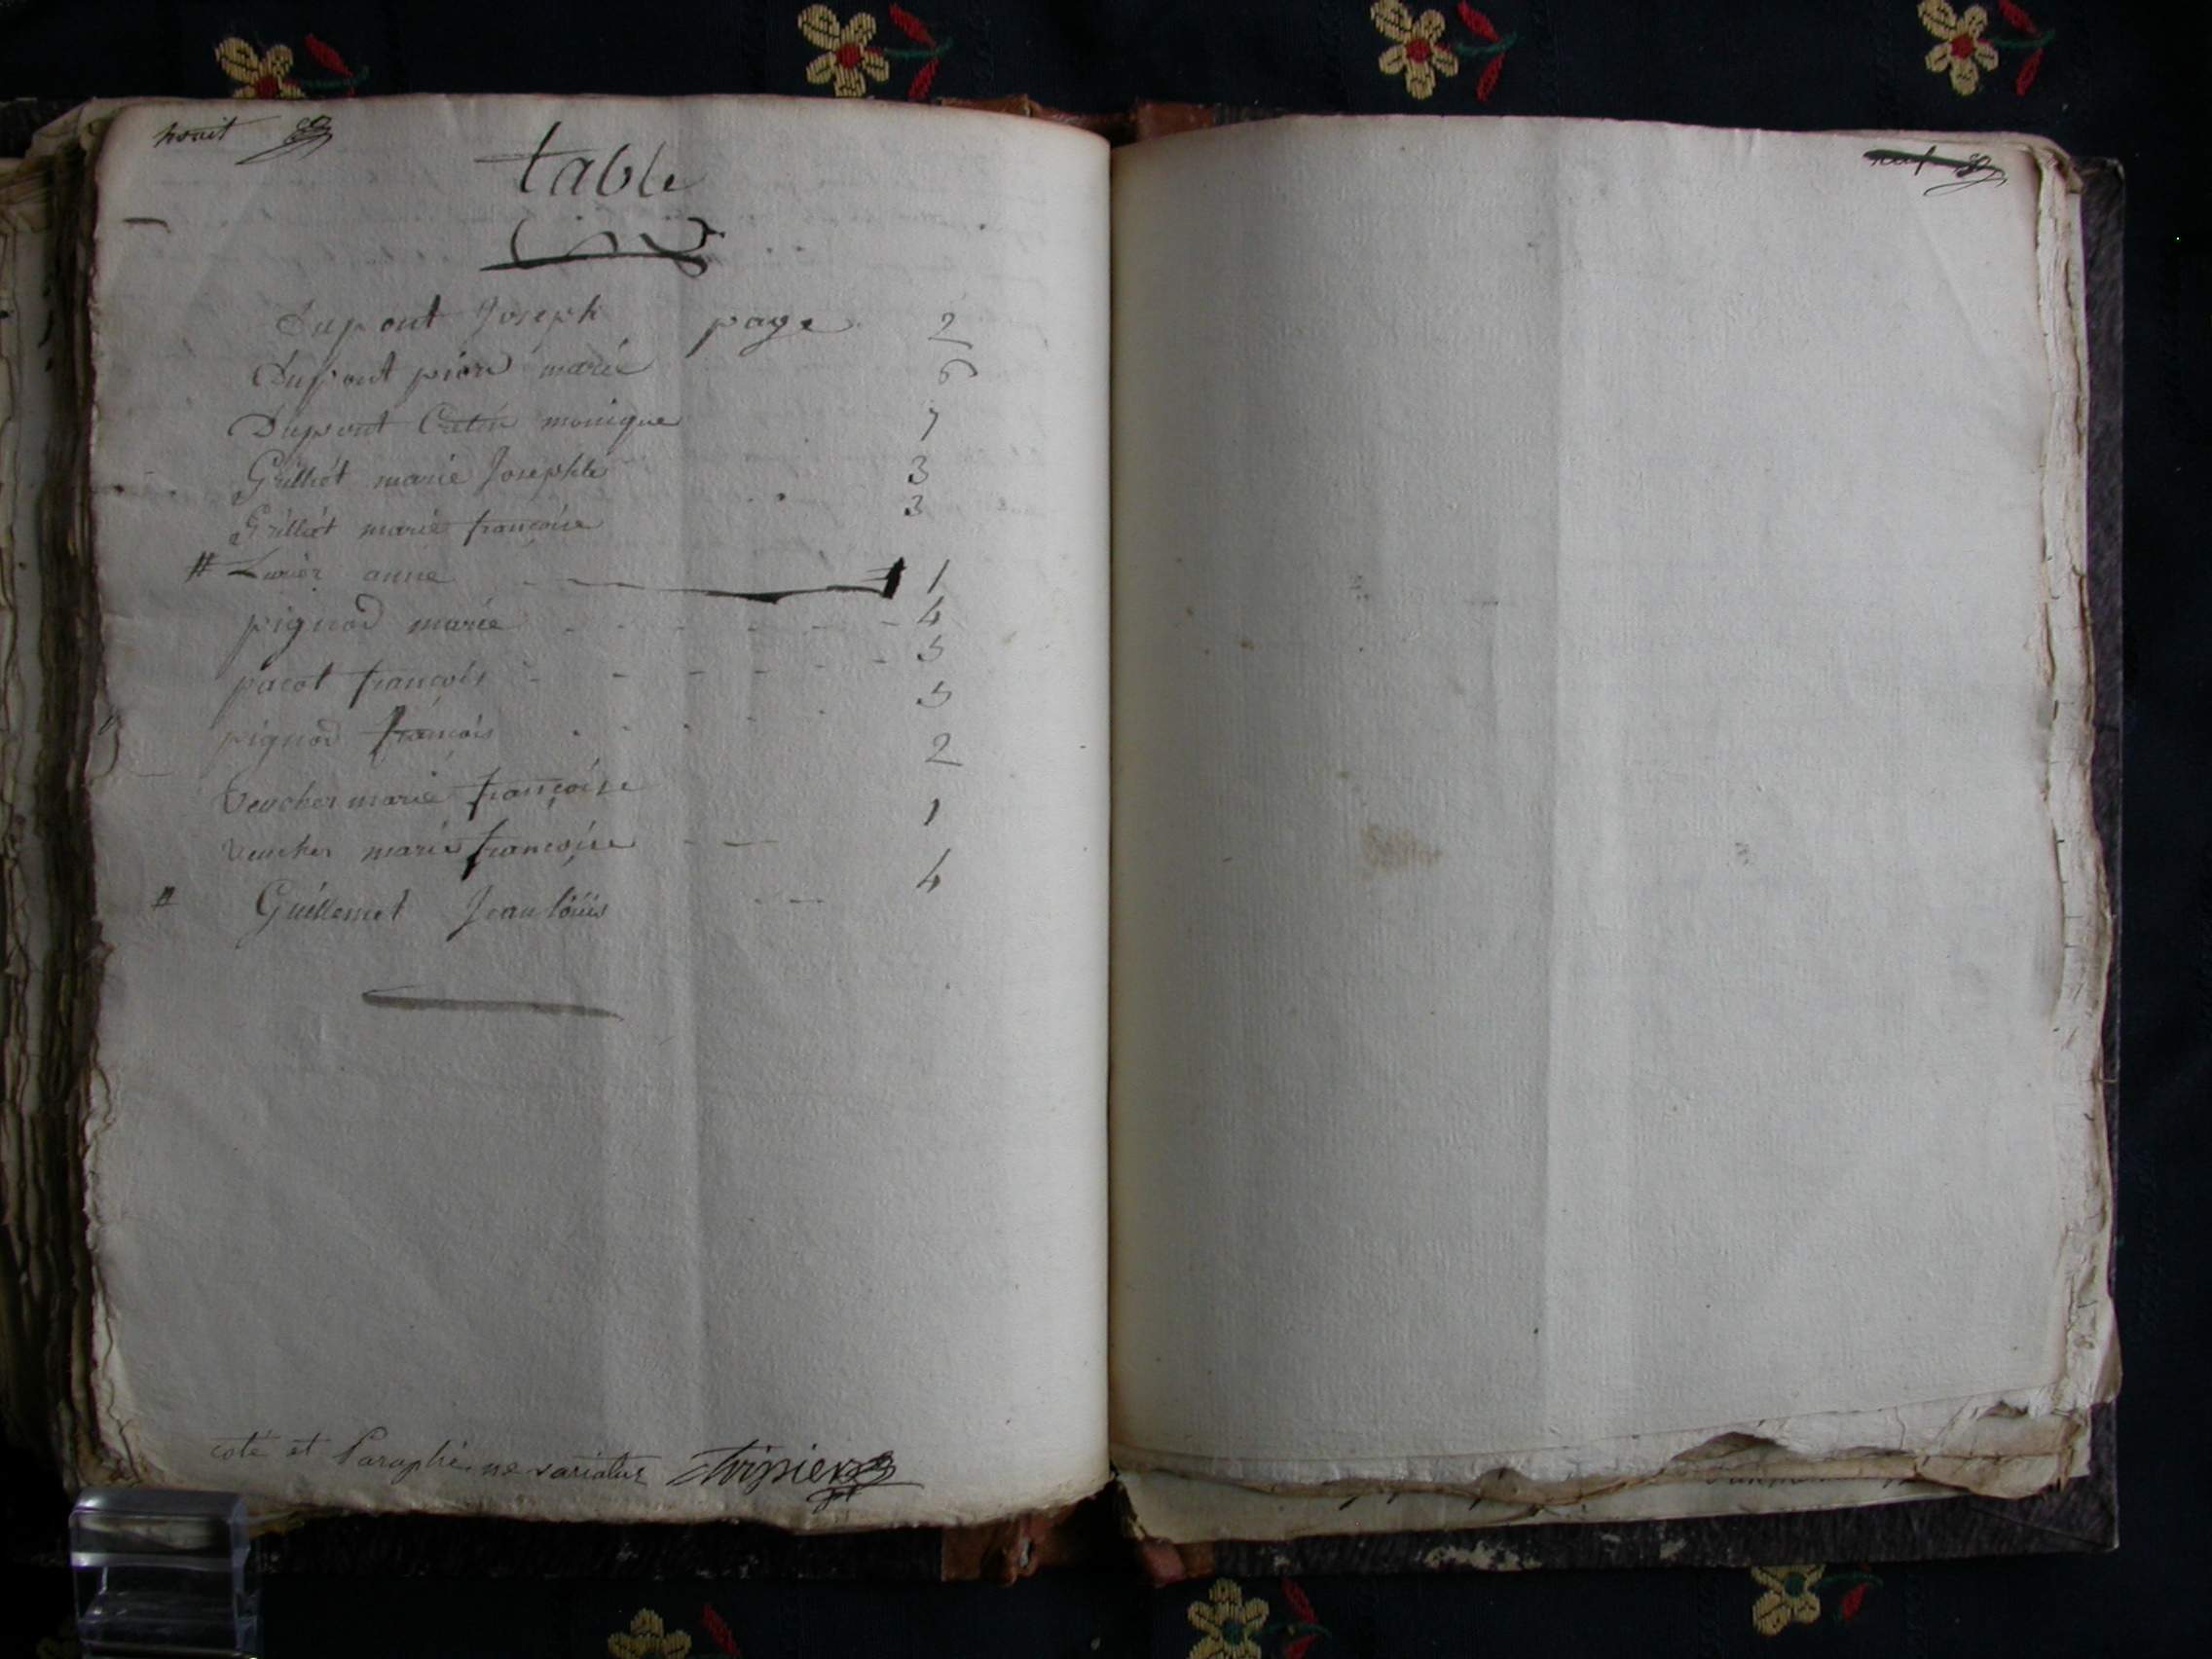 huit
table
Dupont Joseph page 2
Dupont piere marie 6
Dupont Cretin monique 7
Grilliet marie Josephte 3
Grilliet marie françoise 3
# Lurier anne 1
pignod marie - - - - - - 4
pacot françois - - - - - - 5
pignod françois . . . . . 5
Veucher marie françoise 2
veucher marie françoise - - 1
# Guillemet Jean loüis - - 4
coté et Paraphé ne varietur